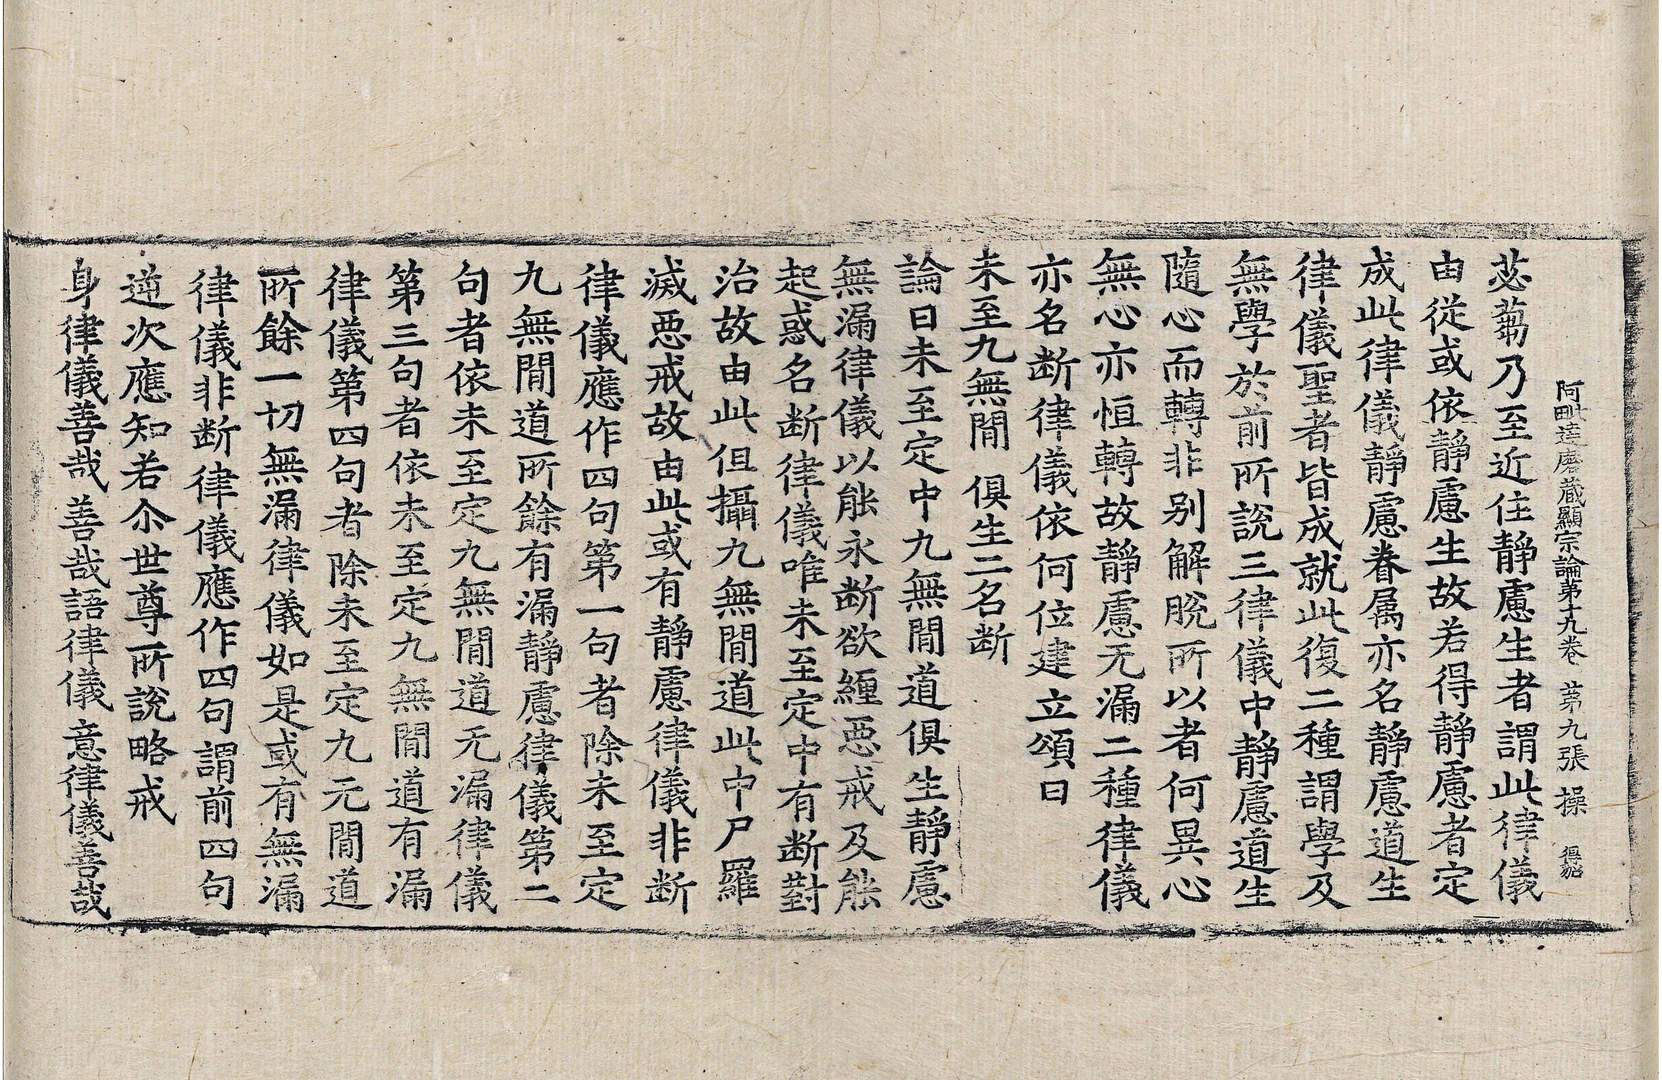 阿毗達磨藏顯宗論第十九卷 第九張 操
苾蒭乃至近住靜慮生者謂此律儀
由從或依靜慮生故若得靜慮者定
成此律儀靜慮眷属亦名靜慮道生
律儀聖者皆成就此復二種謂學及
無學於前所說三律儀中靜慮道生
隨心而轉非别解脫所以者何異心
無心亦恒轉故靜慮无漏二種律儀
亦名断律儀依何位建立頌曰
未至九無閒 俱生二名断
論曰未至定中九無閒道俱生靜慮
無漏律儀以能永断欲纏惡戒及能
起惑名断律儀唯未至定中有断對
治故由此但攝九無閒道此中尸羅
滅惡戒故由此或有靜慮律儀非断
律儀應作四句第一句者除未至定
九無閒道所餘有漏靜慮律儀第二
句者依未至定九無閒道无漏律儀
第三句者依未至定九無閒道有漏
律儀第四句者除未至定九元閒道
所餘一切無漏律儀如是或有無漏
律儀非断律儀應作四句謂前四句
逆次應知若尒世尊所說略戒
身律儀善哉 善哉語律儀 意律儀善哉